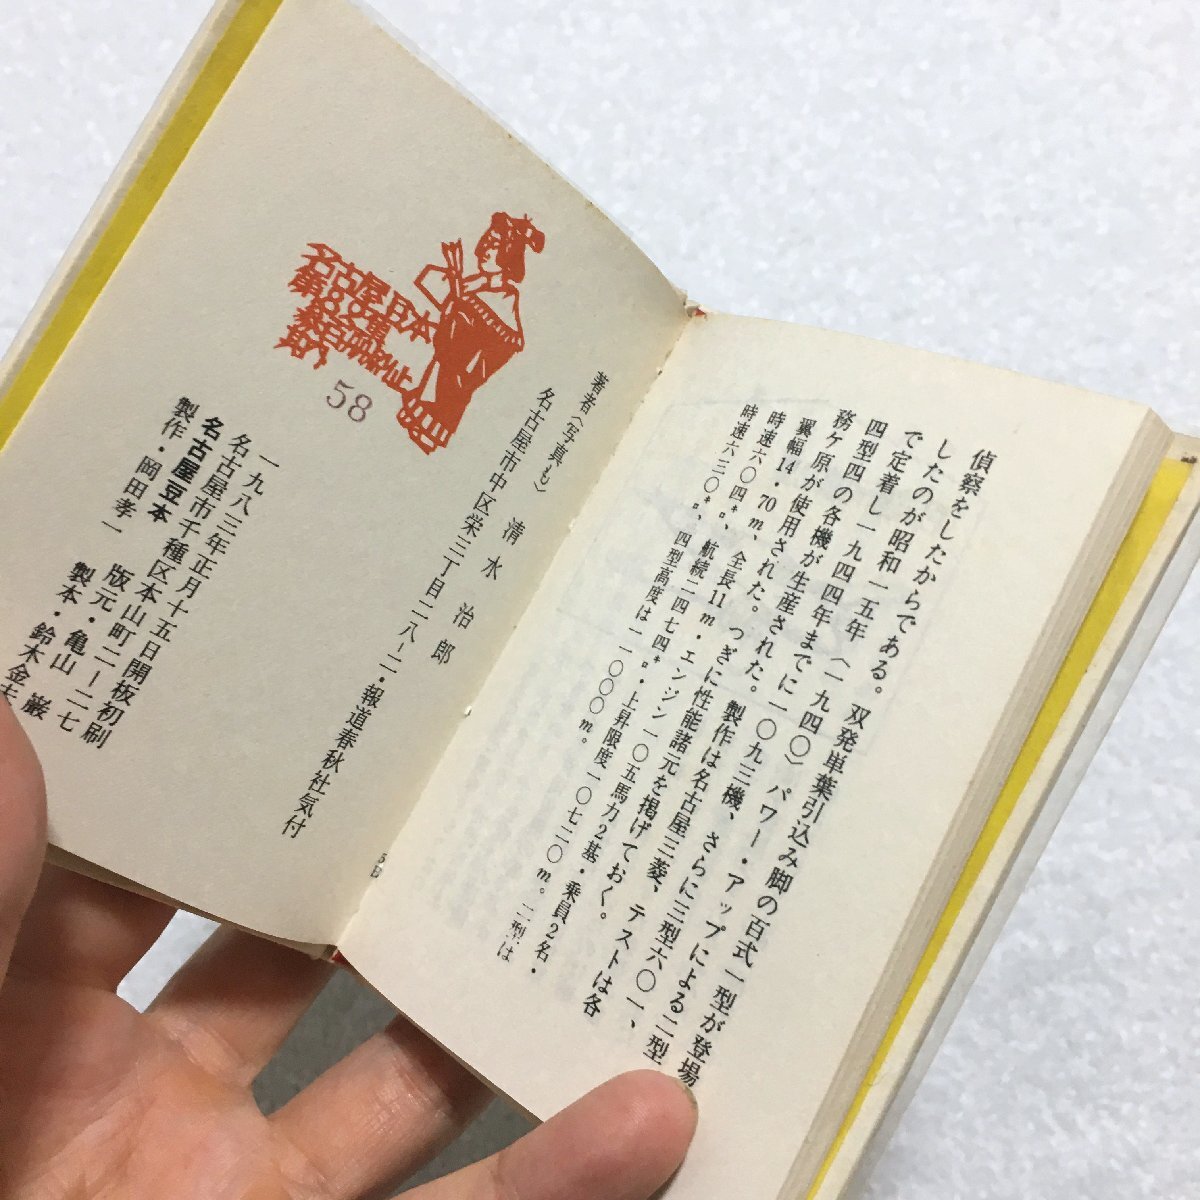 偵察をしたからである。双発単葉引込み脚の百式一型が登場
したのが昭和一五年（一九四〇）パワー・アップによる二型
で定着し一九四四年までに一〇九三機、さらに三型六〇一、
四型四の各機が生産された。製作は名古屋三菱、テストは各
務ケ原が使用された。つぎに性能諸元を掲げておく。
翼幅14・70m、全長11m・エンジン一〇五馬力2基・乗員2名・
時速六〇四㌔、航続二四七四㌔・上昇限度一〇七二〇m。二型は
時速六三〇㌔、四型高度は一一〇〇〇m。
著者〈写真も〉 清水治郎
名古屋市中区栄三丁目二八−二・報道春秋社気付
58
一九八三年正月十五日開板初刷
名古屋市千種区本山町二−二七
名古屋豆本 版元・亀山巌
製作・岡田孝一 製本・鈴木金